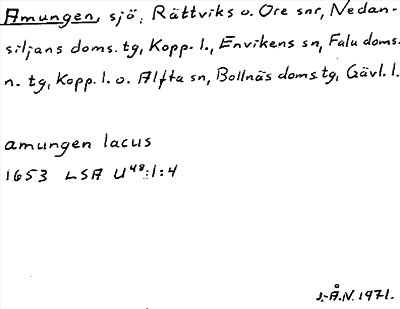 Amungen, sjö, Rättviks o. Ore snr, Nedan-
siljans doms. tg, Kopp. l., Envikens sn, Falu doms.
n. tg, Kopp. l. o. Alfta sn, Bollnäs doms. tg, Gävl. l.
amungen lacus
1653 LSA U48:1:4
J.-Å.N. 1971.